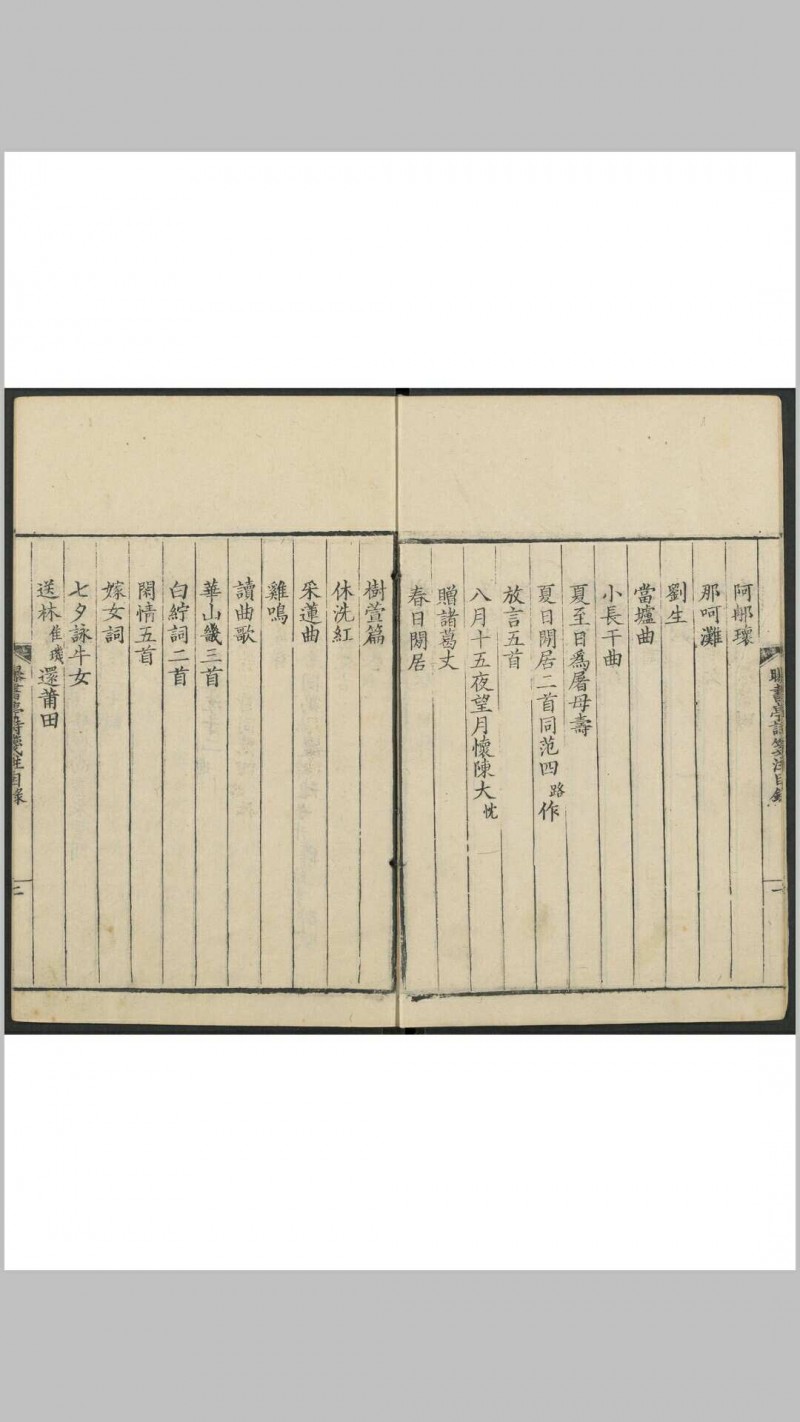 阿那瓌
那呵灘
劉生
當壚曲
小長干曲
夏至日為屠母壽
夏日閒居二首同范四路作
放言五首
八月十五夜望月懷陳大忱
贈諸葛丈
春日閒居
曝書亭詩箋注目錄
一
樹萱篇
休洗紅
采蓮曲
雞鳴
讀曲歌
華山畿三首
白紵詞二首
閑情五首
嫁女詞
七夕詠牛女
送林佳璣還莆田
曝書亭詩箋注目錄
二